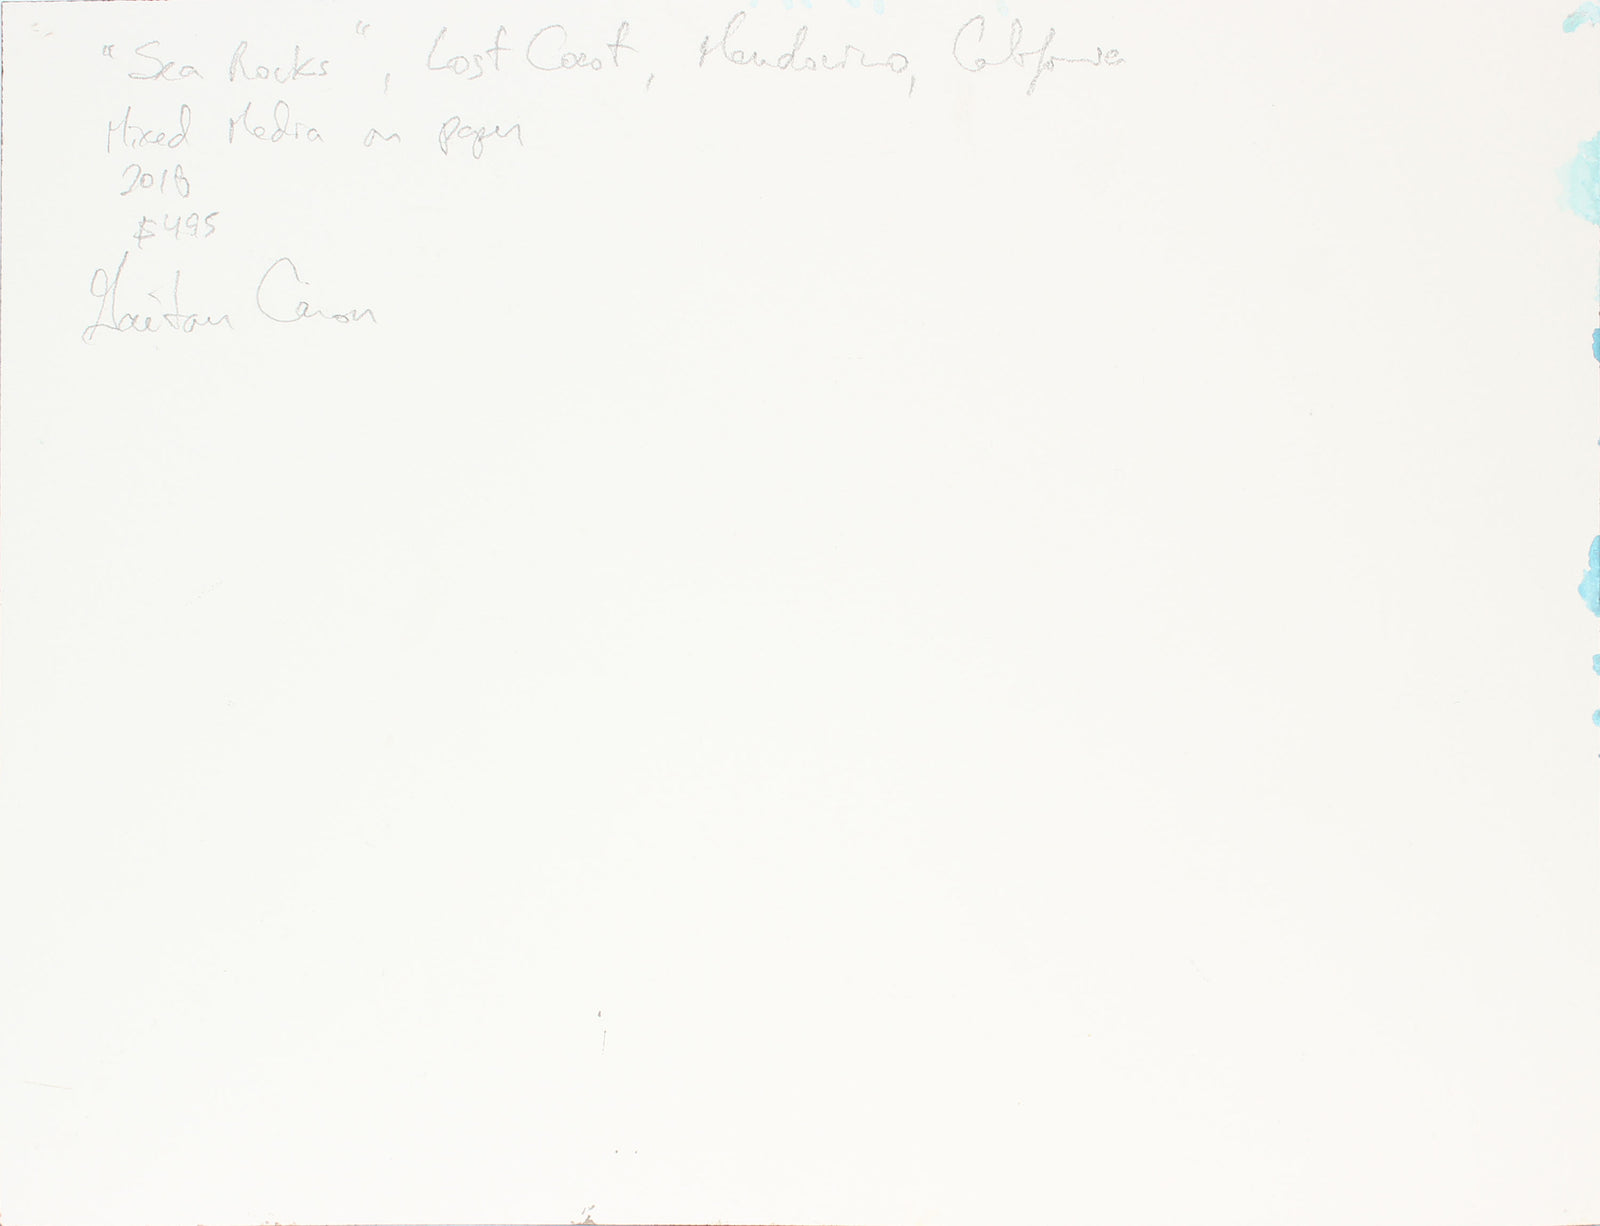 "Sea Rocks", Lost Coast, Mendocino, California
Mixed Media on paper
2018
$495
Gaétan Caron